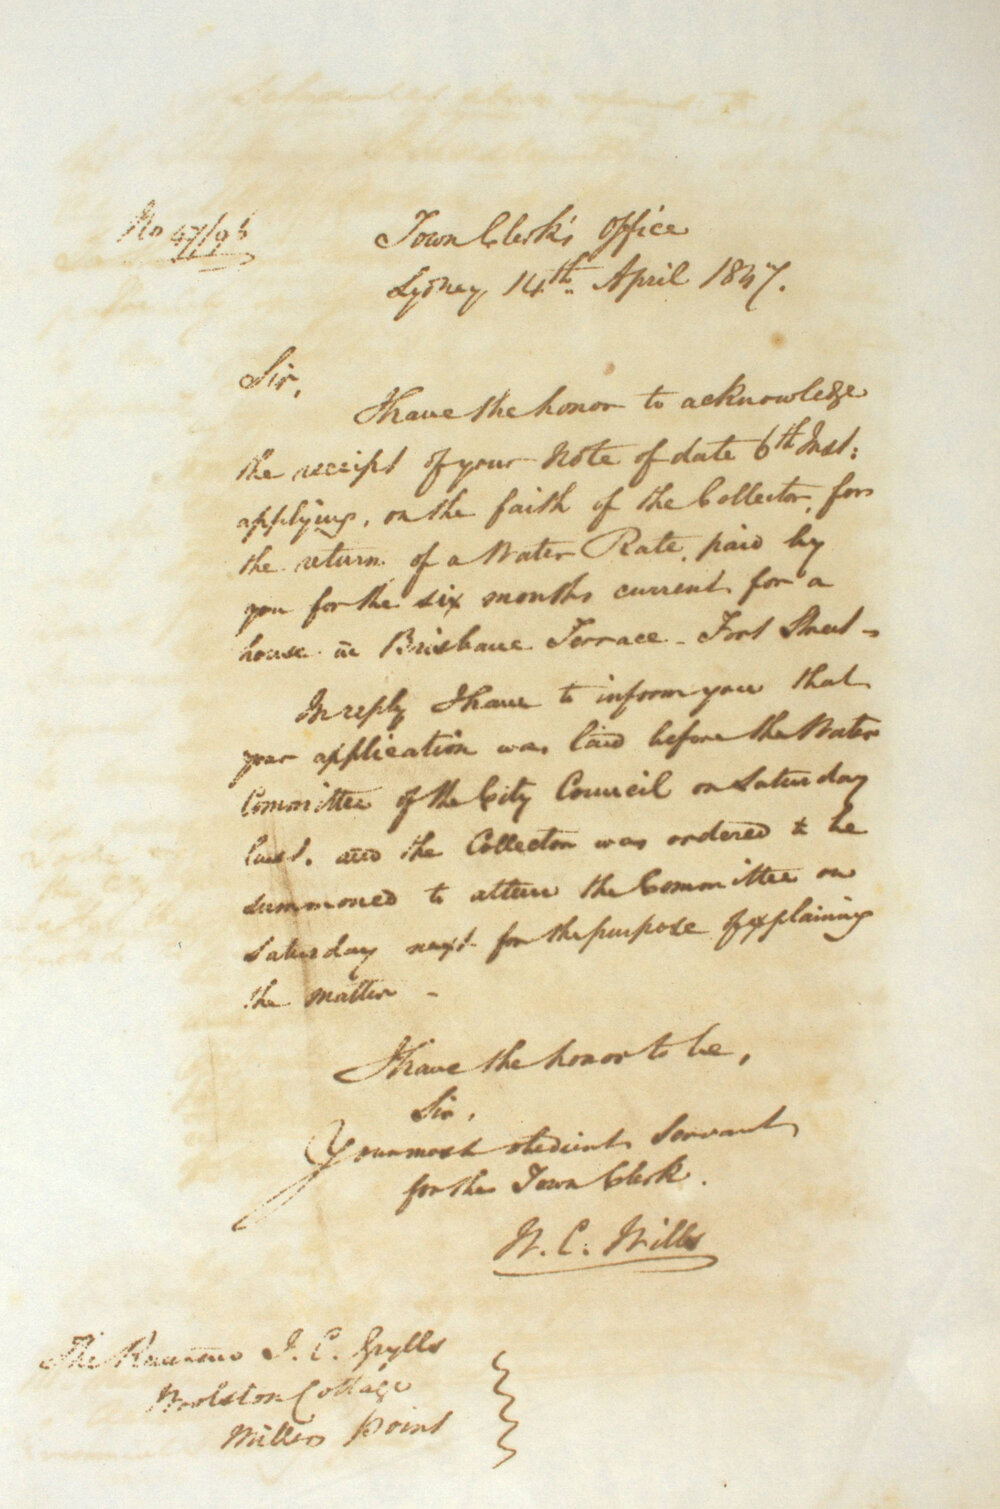 No 47/96
Town Clerk's Office
Sydney 14th April 1847.
Sir,
I have the honor to acknowledge
the receipt of your Note of date 6th Inst:
applying, on the faith of the Collector, for
the return of a Water Rate, paid by
you for the six months current for a
house in Brisbane Terrace - Fort Street -
In reply I have to inform you that
your application was laid before the Water
Committee of the City Council on Saturday
last, and the Collector was ordered to be
summoned to attend the Committee on
Saturday next for the purpose of explaining
the matter -
I have the honor to be,
Sir,
Your most obedient Servant
for the Town Clerk.
W. C. Wills
The Reverend J. C. Grylls
Woolston Cottage
Millers Point